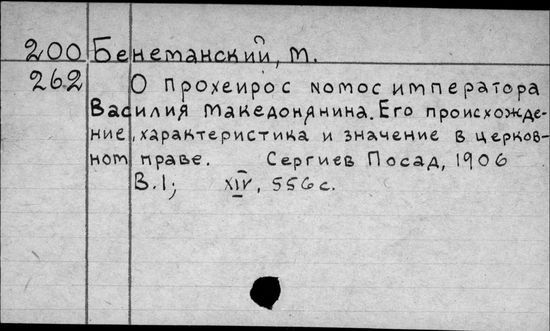 200 Бенеманский, М.
262 О прохеирос номос императора
Василия Македонянина. Его происхожде-
ние, характеристика и значение в церков-
ном праве. Сергиев Посад, 1906
В.1; XIV, 556 с.